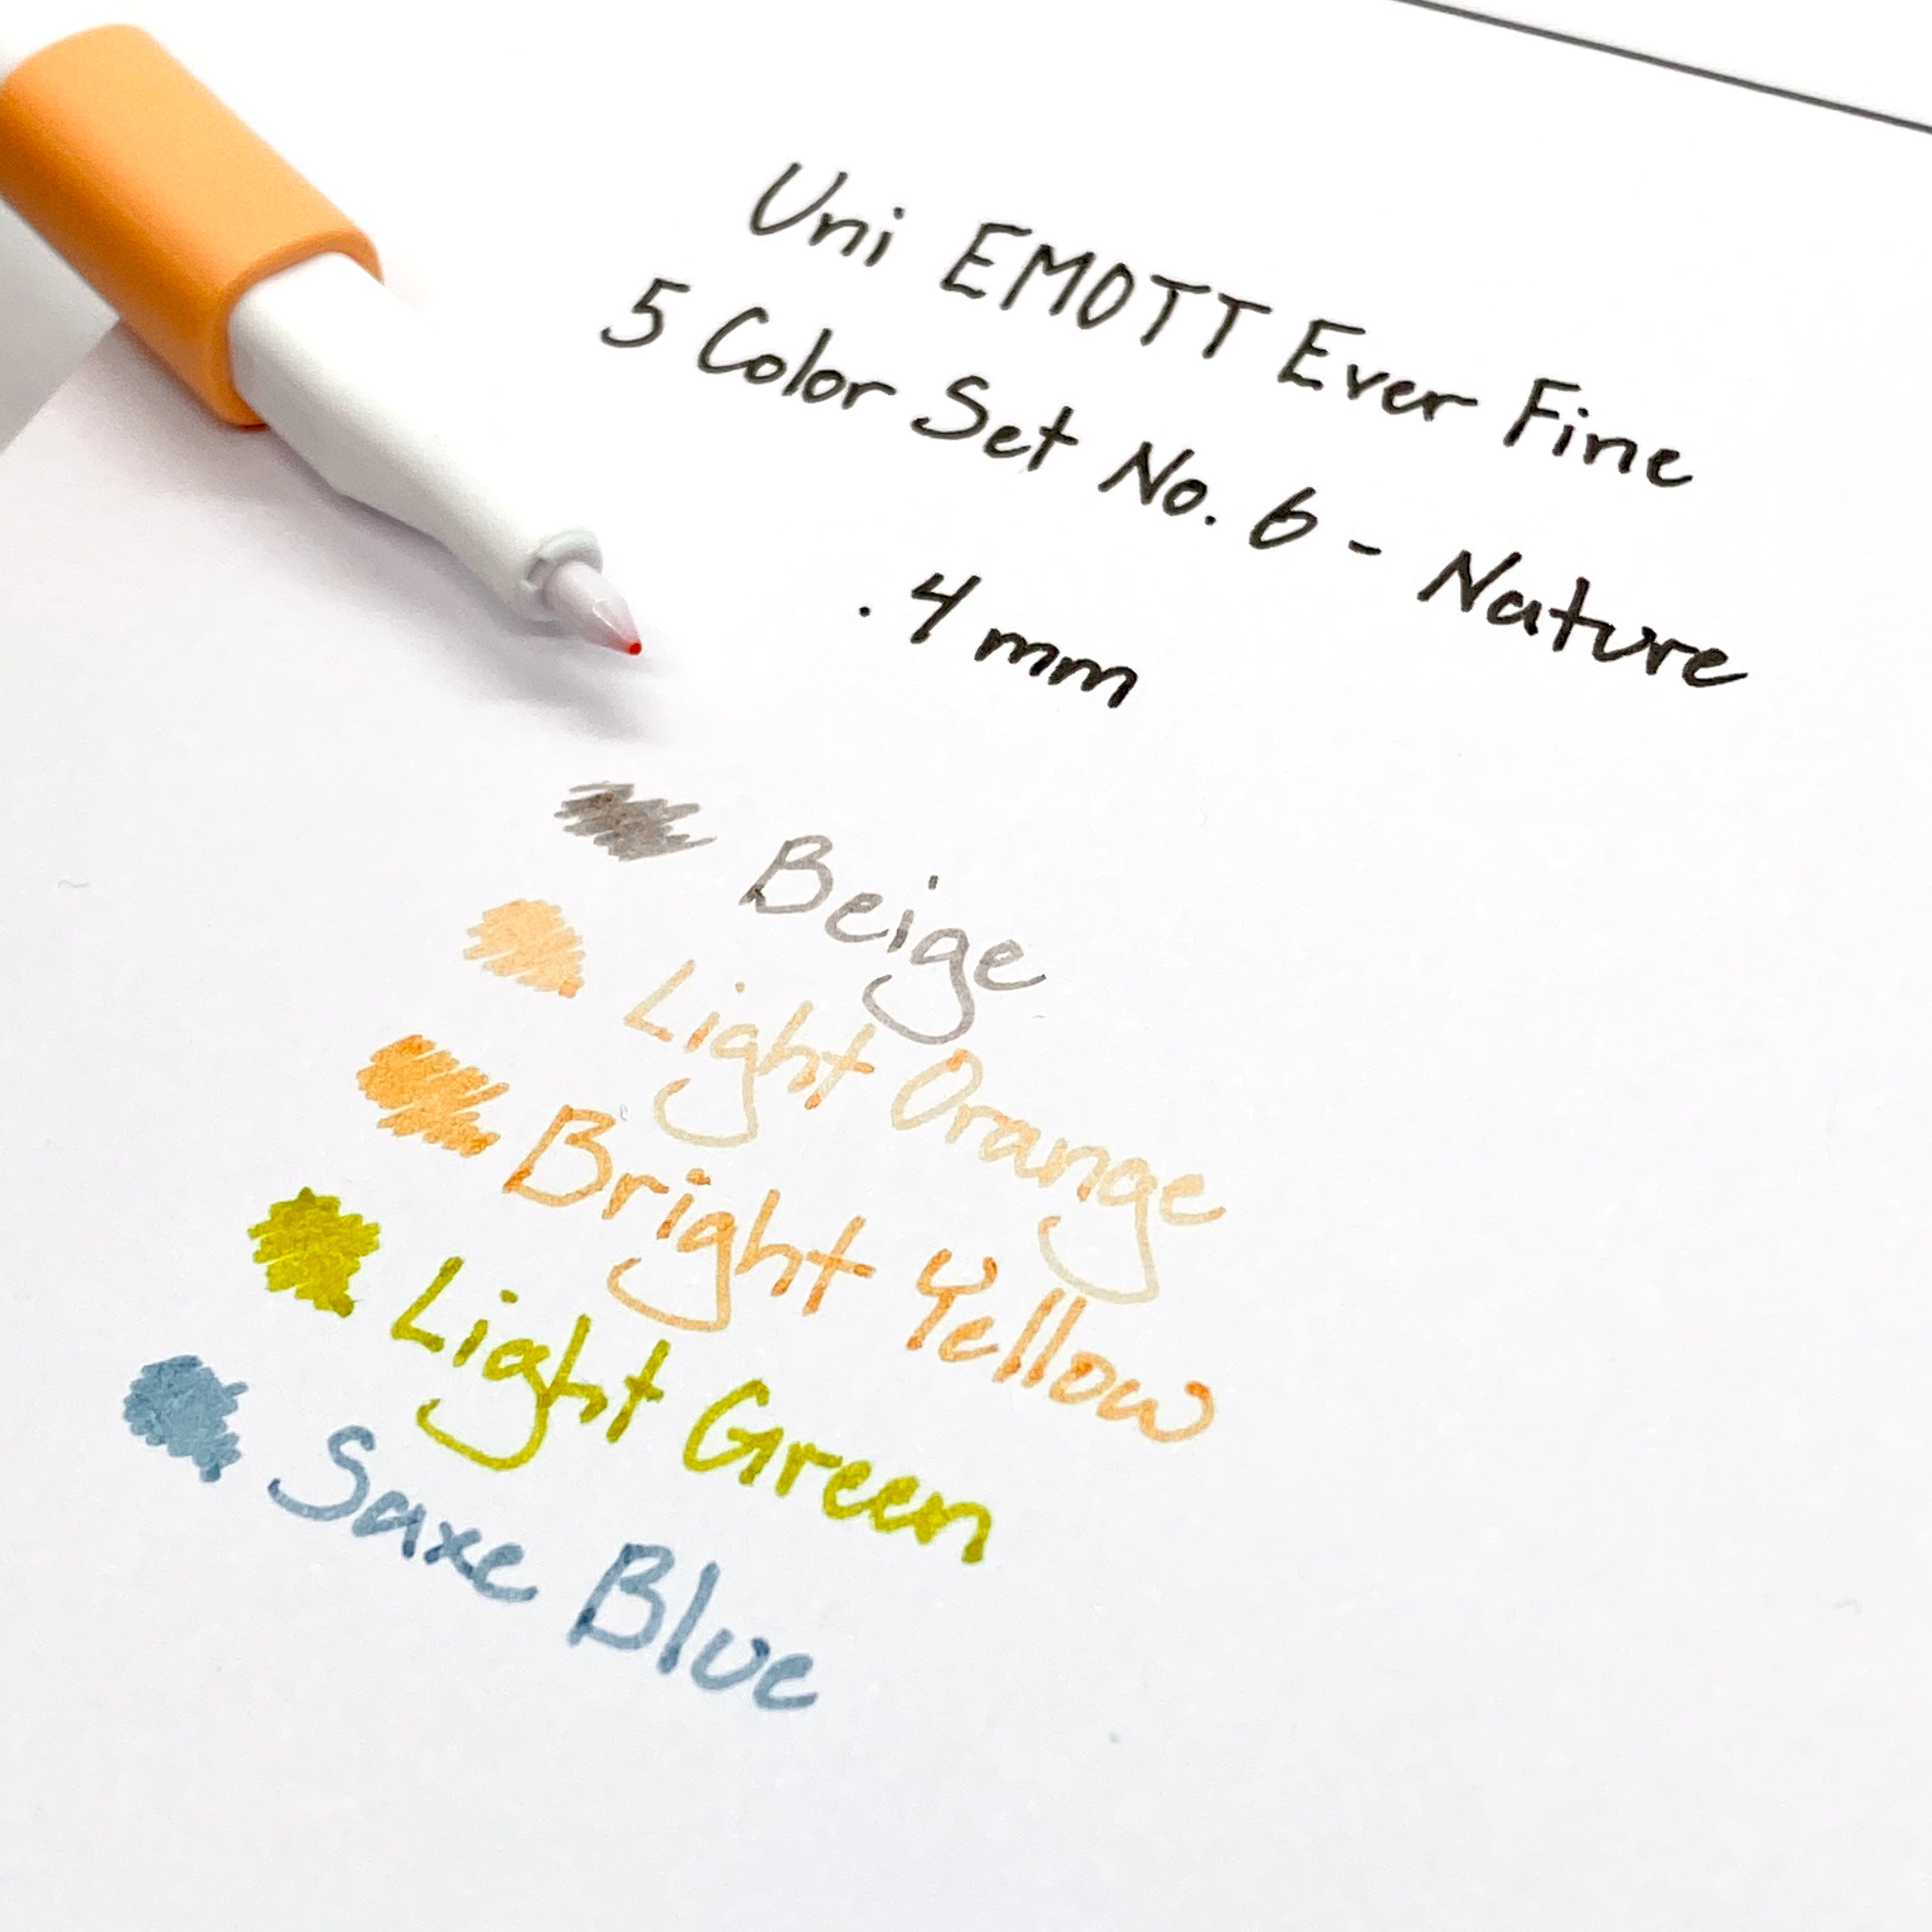 Uni EMOTT Ever Fine
5 Color Set No. 6 - Nature
.4 mm
Beige
Light Orange
Bright Yellow
Light Green
Saxe Blue